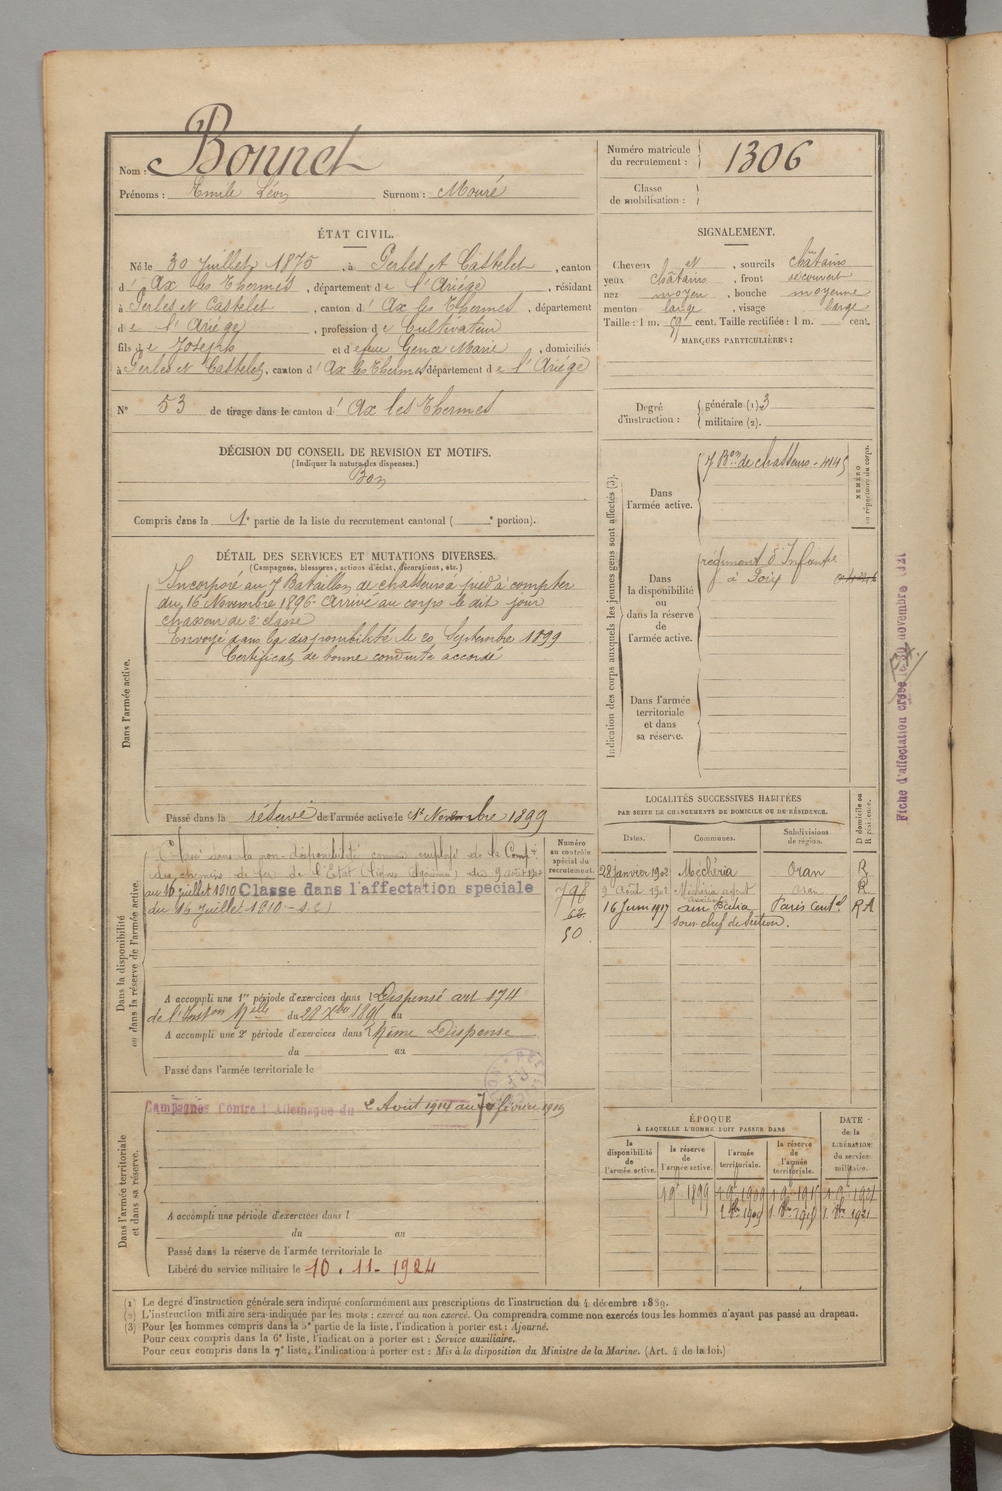 Nom : Bonnet
Prénoms : Emile Léon Surnom : Mouré
Numéro matricule du recrutement : 1306
Classe de mobilisation :
ÉTAT CIVIL.
Né le 30 Juillet 1875, à Perles et Castelet, canton
d' Ax les Thermes, département de l'Ariège, résidant
à Perles et Castelet, canton d' Ax les Thermes, département
de l'Ariège, profession de Cultivateur
fils de Joseph et de feue Marie, domiciliés
à Perles et Castelet, canton d' Ax les Thermes département de l'Ariège
N° 53 de tirage dans le canton d' Ax les Thermes
DÉCISION DU CONSEIL DE REVISION ET MOTIFS.
(Indiquer la nature des dispenses.)
Bon
Compris dans la 1e partie de la liste du recrutement cantonal ( e portion).
SIGNALEMENT.
Cheveux et, sourcils châtains
yeux châtains, front découvert
nez moyen, bouche moyenne
menton large, visage large
Taille : 1 m. 59 cent. Taille rectifiée : 1 m. cent.
MARQUES PARTICULIÈRES :
Degré d'instruction :
générale (1). 3
militaire (2).
DÉTAIL DES SERVICES ET MUTATIONS DIVERSES.
(Campagnes, blessures, actions d'éclat, décorations, etc.)
Dans l'armée active.
Incorporé au 7 Bataillon de chasseurs à pied à compter
du 16 Novembre 1896. Arrivé au corps le dit jour
chasseur de 2e classe
Envoyé dans la disponibilité le 20 Septembre 1899
Certificat de bonne conduite accordé
Passé dans la réserve de l'armée active le 1er Novembre 1899
Indication des corps auxquels les jeunes gens sont affectés (3).
NUMÉRO au répertoire du corps.
Dans l'armée active.
7 Bon de chasseurs - 4145
Dans la disponibilité ou dans la réserve de l'armée active.
régiment d'Infanterie
à Foix
Dans l'armée territoriale et dans sa réserve.
Dans la disponibilité ou dans la réserve de l'armée active.
Classé dans la non-disponibilité comme employé de la Compie
des chemins de fer de l'Etat du 9 août 1902
au 16 juillet 1910 Classé dans l'affectation spéciale
du 16 Juillet 1910
Numéro au contrôle spécial du recrutement
50
A accompli une 1re période d'exercices dans l Dispensé art 174
du 28 Xbre au
A accompli une 2e période d'exercices dans l Même Dispense
du au
Passé dans l'armée territoriale le
LOCALITÉS SUCCESSIVES HABITÉES
PAR SUITE DE CHANGEMENTS DE DOMICILE OU DE RÉSIDENCE.
Dates. Communes. Subdivisions de région. D domicile ou R résidence.
28 janvier 1902 Mécheria Oran R
9 Août 1902 Mécheria Oran R
16 Juin 1917 Paris Central RA
sous chef de section.
Dans l'armée territoriale et dans sa réserve.
Campagnes Contre l'Allemagne du 2 Août 1914 au février 1919
A accompli une période d'exercices dans l
du au
Passé dans la réserve de l'armée territoriale le
Libéré du service militaire le 10. 11. 1924
ÉPOQUE
À LAQUELLE L'HOMME DOIT PASSER DANS
la disponibilité de l'armée active. la réserve de l'armée active. l'armée territoriale. la réserve de l'armée territoriale. DATE de la LIBÉRATION du service militaire.
1 9e 1899 1 9e 1909 1 9e 1915 1 9e 1921
1 8bre 1909 1 8bre 1915 1 8bre 1921
(1) Le degré d'instruction générale sera indiqué conformément aux prescriptions de l'instruction du 4 décembre 1889.
(2) L'instruction militaire sera indiquée par les mots : exercé ou non exercé. On comprendra comme non exercés tous les hommes n'ayant pas passé au drapeau.
(3) Pour les hommes compris dans la 5e partie de la liste, l'indication à porter est : Ajourné.
Pour ceux compris dans la 6e liste, l'indication à porter est : Service auxiliaire.
Pour ceux compris dans la 7e liste, l'indication à porter est : Mis à la disposition du Ministre de la Marine. (Art. 4 de la loi.)
Fiche d'affectation novembre 1921